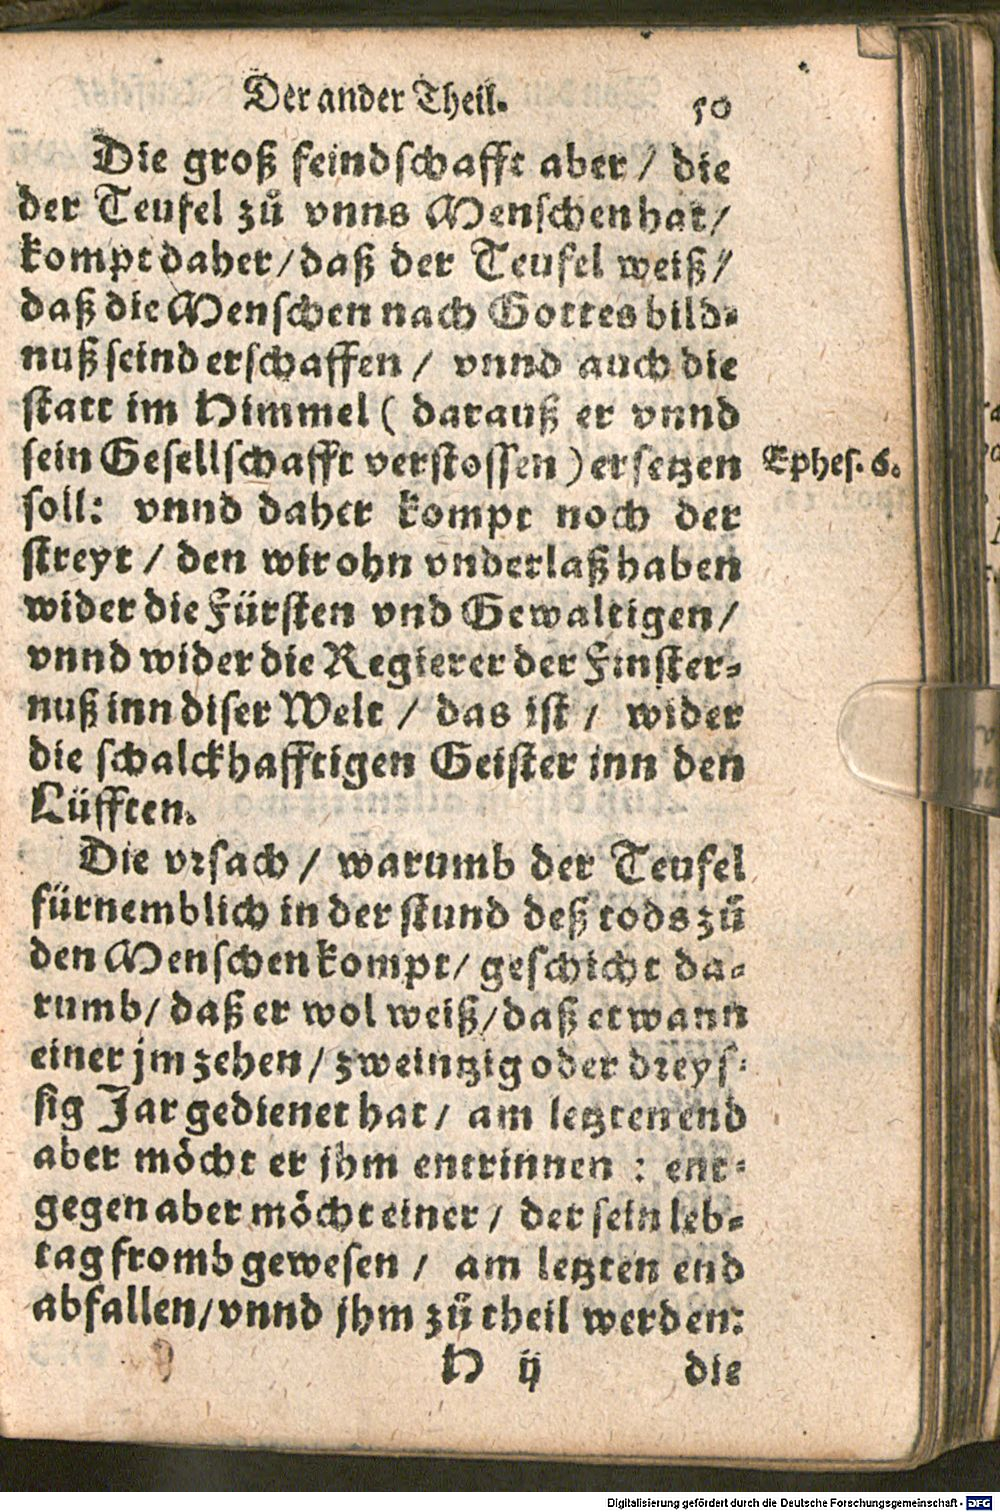 Der ander Theil. 50
Die groß feindschafft aber / die
der Teufel zů vnns Menschen hat /
kompt daher / daß der Teufel weiß /
daß die Menschen nach Gottes bild-
nuß seind erschaffen / vnnd auch die
statt im Himmel ( darauß er vnnd
sein Gesellschafft verstossen ) ersetzen
Ephes. 6.
soll: vnnd daher kompt noch der
streyt / den wir ohn vnderlaß haben
wider die Fürsten vnd Gewaltigen /
vnnd wider die Regierer der Finster-
nuß inn diser Welt / das ist / wider
die schalckhafftigen Geister inn den
Lüfften.
Die vrsach / warumb der Teufel
fürnemblich in der stund deß tods zů
den Menschen kompt / geschicht da-
rumb / daß er wol weiß / daß etwann
einer jm zehen / zweintzig oder dreys-
sig Jar gedienet hat / am letzten end
aber möcht er jhm entrinnen : ent-
gegen aber möcht einer / der sein leb-
tag fromb gewesen / am letzten end
abfallen / vnnd jhm zů theil werden:
H ij die
Digitalisierung gefördert durch die Deutsche Forschungsgemeinschaft - DFG